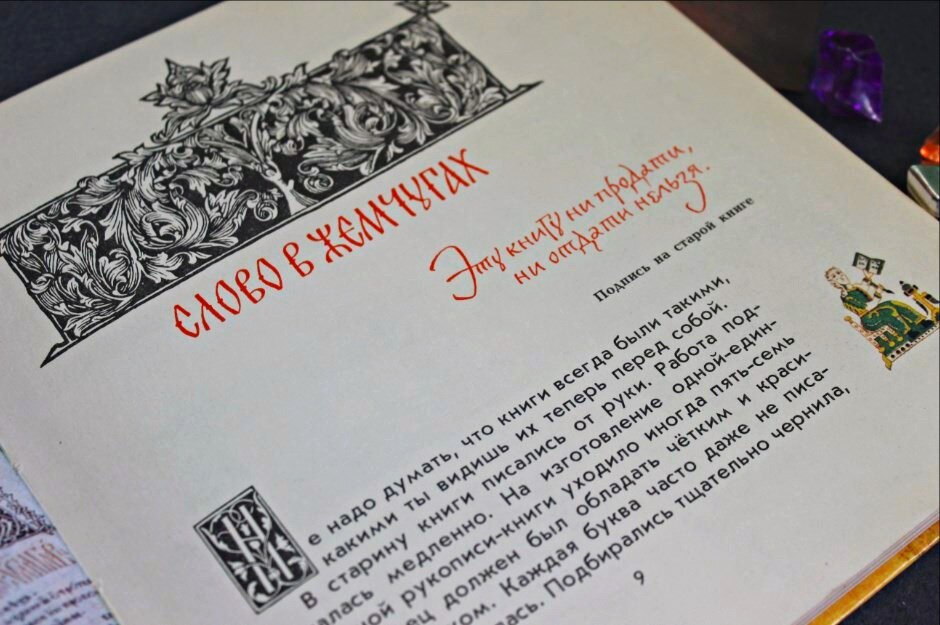 СЛОВО В ЖЕМЧУГАХ
Эту книгу ни продати,
ни отдати нельзя.
Подпись на старой книге
Не надо думать, что книги всегда были такими,
какими ты видишь их теперь перед собой.
В старину книги писались от руки. Работа под-
алась медленно. На изготовление одной-един-
ной рукописи-книги уходило иногда пять-семь
ец должен был обладать чётким и краси-
ком. Каждая буква часто даже не писа-
лась. Подбирались тщательно чернила,
9